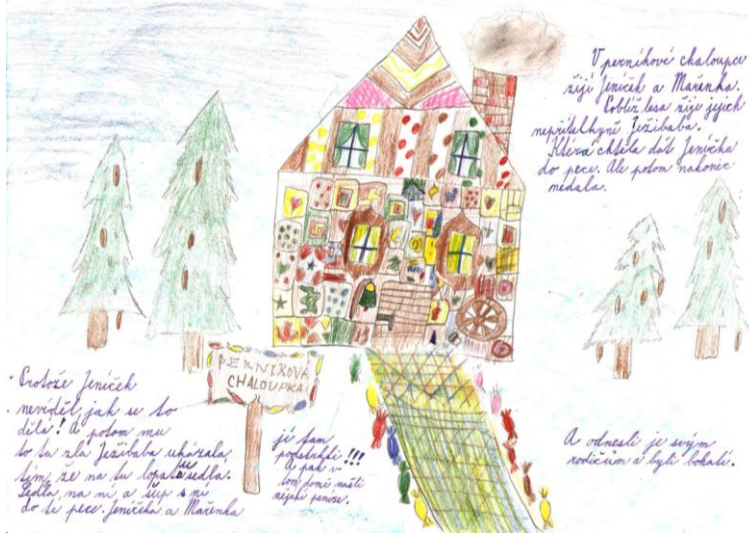 V perníkové chaloupce
žijí Jeníček a Mařenka.
Poblíž lesa žije jejich
nepřítelkyně Ježibaba.
Která chtěla dát Jeníčka
do pece. Ale potom nakonec
nedala.
PERNÍKOVÁ
CHALOUPKA
Protože Jeníček
nevěděl, jak se to
dělá! A potom mu
to ta zlá Ježibaba ukázala,
tím že na tu lopatu sedla.
Sedla na ni a šup s ní
do té pece. Jeníčka a Mařenka
ji tam
postrčili!!!
A pak v
tom domě našli
nějaké peníze.
A odnesli je svým
rodičům a byli bohatí.